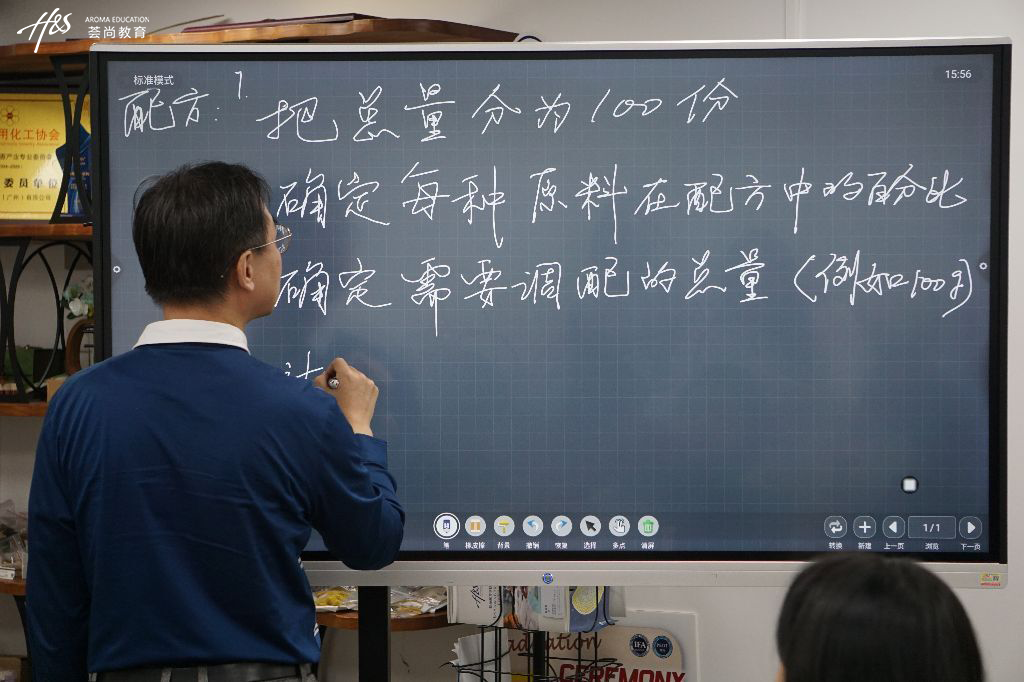 H&S AROMA EDUCATION
荟尚教育
标准模式
15:56
配方: 1. 把总量分为100份
确定每种原料在配方中的百分比
确定需要调配的总量(例如100g)
计
用化工协会
委员单位
笔 橡皮擦 背景 撤销 恢复 选择 多点 清屏
转换 新建 上一页 1/1 浏览 下一页
IFA
CEREMONY